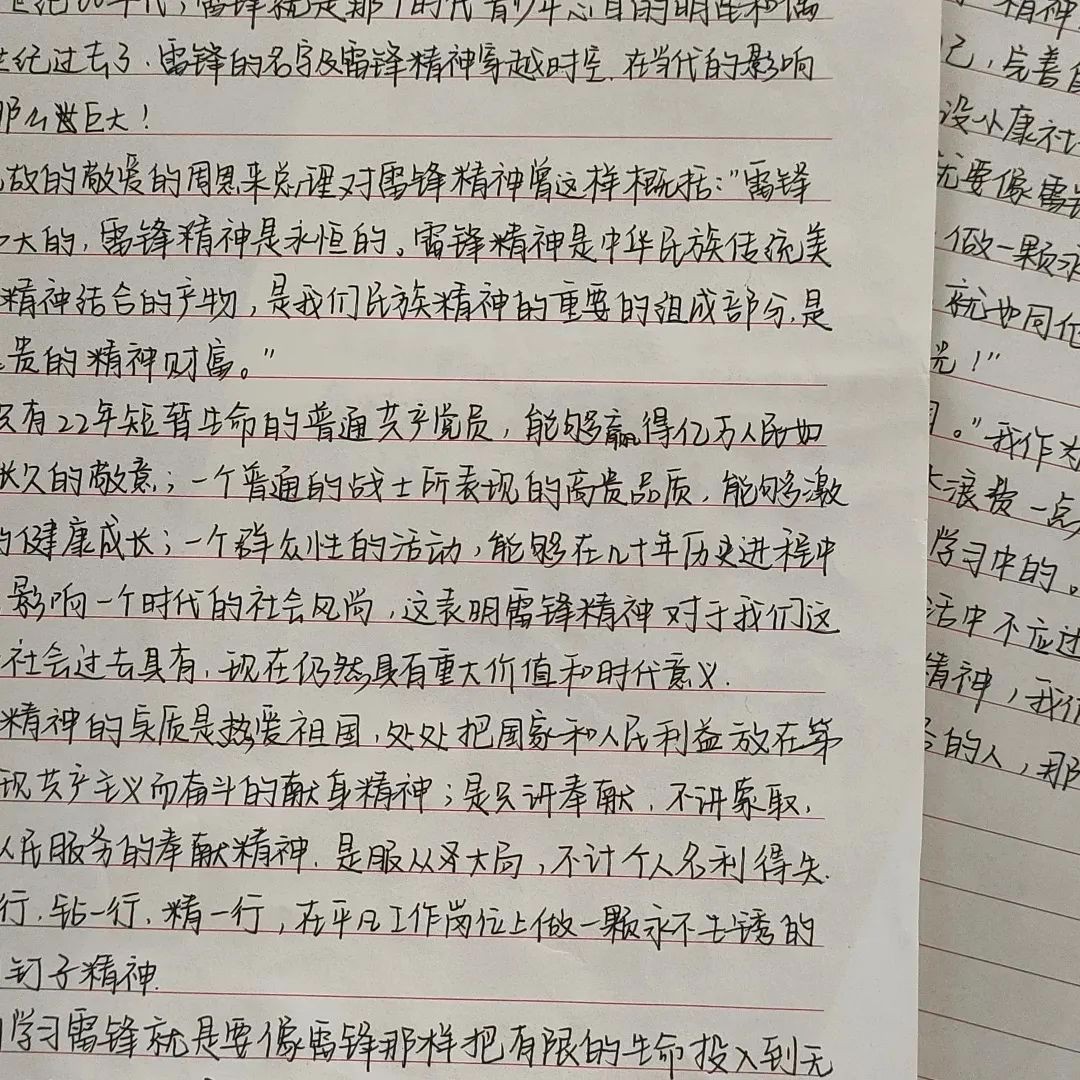 世纪60年代，雷锋就是那个时代青少年心目的明星和偶
世纪过去了.雷锋的名字及雷锋精神穿越时空.在当代的影响
那么巨大！
故的敬爱的周恩来总理对雷锋精神曾这样概括："雷锋
大的，雷锋精神是永恒的。雷锋精神是中华民族传统美
精神结合的产物，是我们民族精神的重要的组成部分，是
贵的精神财富。"
只有22年短暂生命的普通共产党员，能够赢得亿万人民如
长久的敬意；一个普通的战士所表现的高贵品质，能够激
的健康成长；一个群众性的活动，能够在几十年历史进程中
影响一个时代的社会风尚，这表明雷锋精神对于我们这
社会过去具有，现在仍然具有重大价值和时代意义.
精神的实质是热爱祖国，处处把国家和人民利益放在第
现共产主义而奋斗的献身精神；是只讲奉献，不讲索取，
人民服务的奉献精神.是服从大局，不计个人名利得失.
行.钻一行.精一行，在平凡工作岗位上做一颗永不生锈的
钉子精神.
学习雷锋就是要像雷锋那样把有限的生命投入到无
精神
己，完善自
没小康社
就要像雷锋
做一颗永
就如同
光！"
。"我作为
浪费一点
学习中的。
活中不应
精神，我们
的人，那